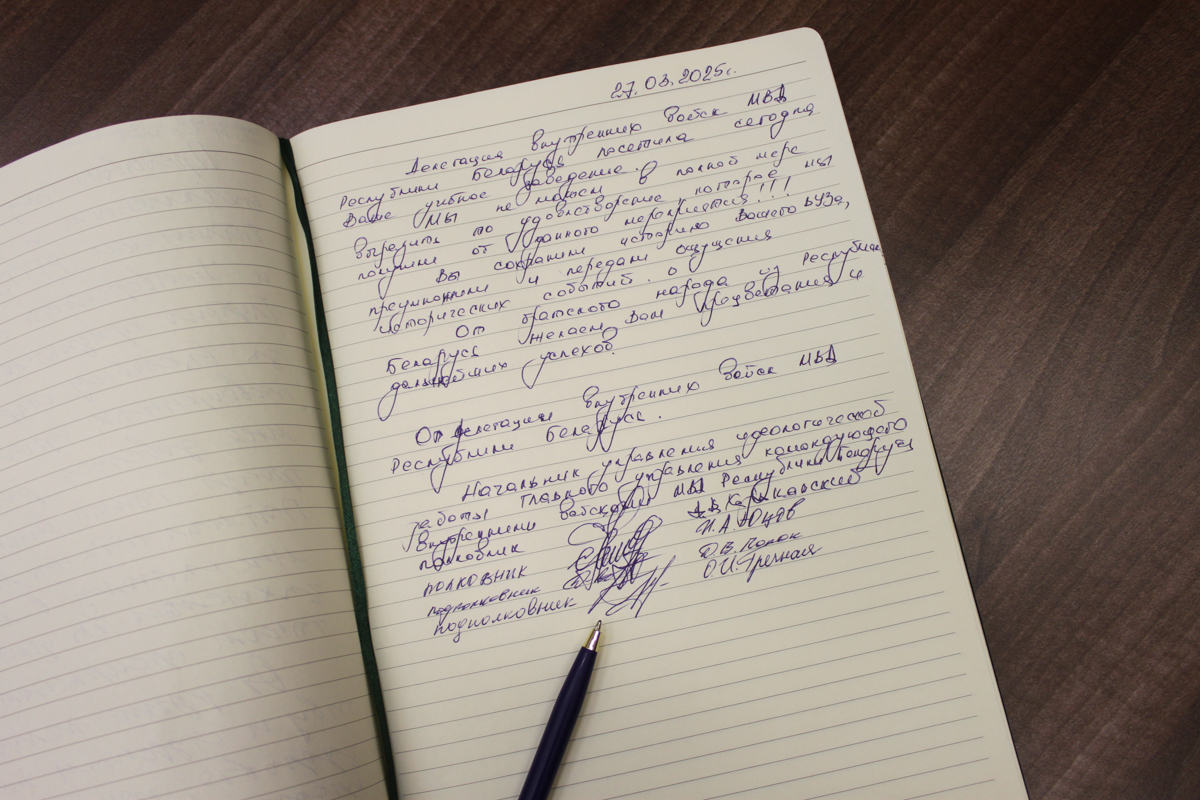 27.03.2025г.
Делегация внутренних войск МВД
Республики Беларусь посетила сегодня
Ваше учебное заведение.
Мы не можем в полной мере
выразить то удовлетворение которое мы
получили от данного мероприятия!!!
Вы сохранили историю Вашего ВУЗа,
преумножили и передали ощущения
исторических событий.
От братского народа из Республики
Беларусь желаем Вам процветания и
дальнейших успехов.
От делегации внутренних войск МВД
Республики Беларусь.
Начальник управления идеологической
работы главного управления командующего
внутренними войсками МВД Республики Беларусь
полковник
полковник И.А.
подполковник
подполковник О.И. Гречная